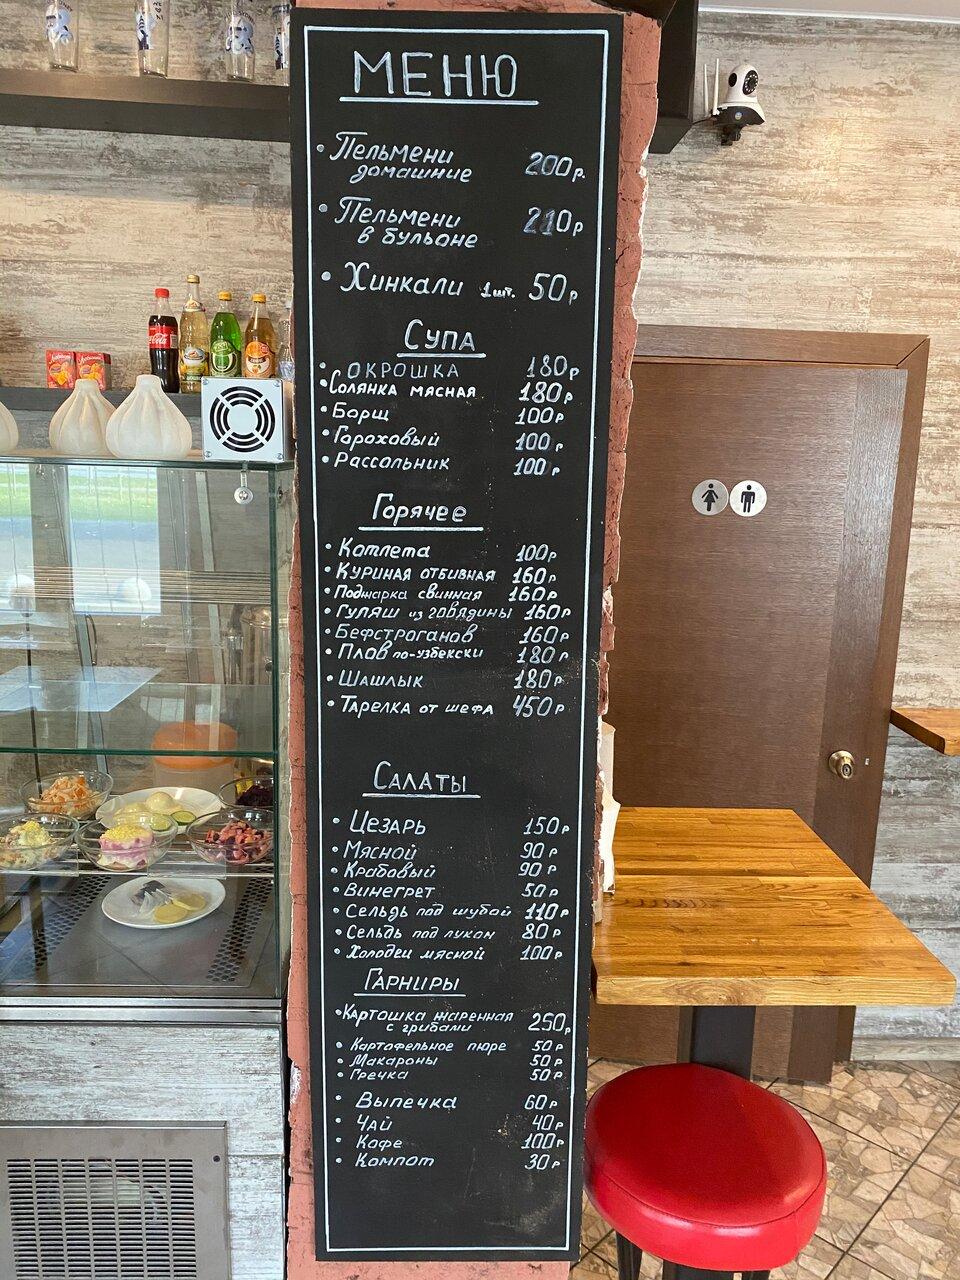 МЕНЮ
• Пельмени
домашние 200р.
• Пельмени
в бульоне 210р
• Хинкали 1шт. 50р
Супа
• ОКРОШКА 180р
• Солянка мясная 180р
• Борщ 100р
• Гороховый 100р
• Рассольник 100р
Горячее
• Котлета 100р
• Куриная отбивная 160р
• Поджарка свинная 160р
• Гуляш из говядины 160р
• Бефстроганов 160р
• Плов по-узбекски 180р
• Шашлык 180р
• Тарелка от шефа 450р
Салаты
• Цезарь 150р
• Мясной 90р
• Крабовый 90р
• Винегрет 50р
• Сельдь под шубой 110р
• Сельдь под луком 80р
• Холодец мясной 100р
Гарниры
• Картошка жаренная
с грибами 250р
• Картофельное пюре 50р
• Макароны 50р
• Гречка 50р
• Выпечка 60р
• Чай 40р
• Кофе 100р
• Компот 30р